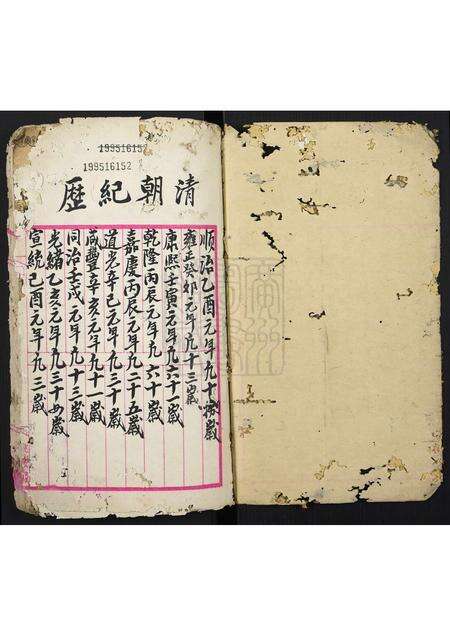 199516152
199516152
清朝紀歷
順治乙酉元年九十捌歲
雍正癸卯元年九十三歲
康熙壬寅元年九六十一歲
乾隆丙辰元年九六十歲
嘉慶丙辰元年九二十五歲
道光辛巳元年九三十歲
咸豐辛亥元年九十一歲
同治壬戌元年九十三歲
光緒乙亥元年九三十四歲
宣統己酉元年九三歲